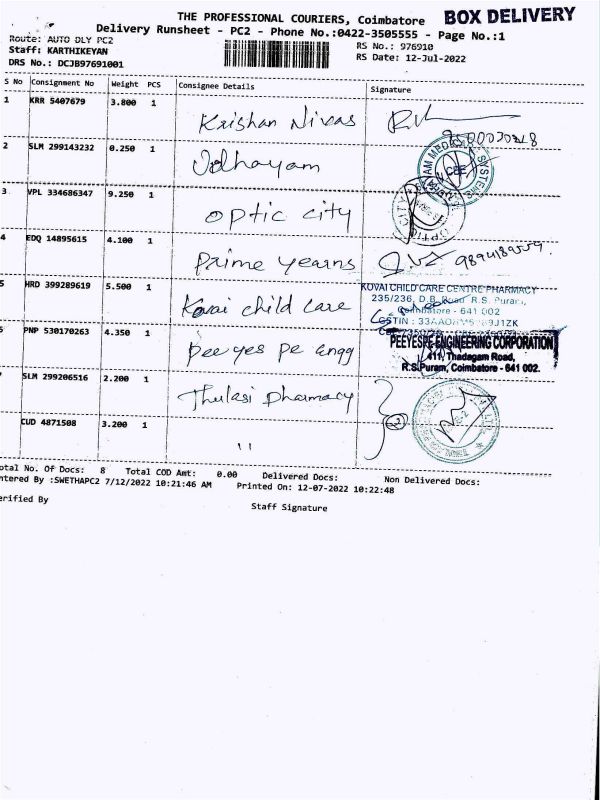 THE PROFESSIONAL COURIERS, Coimbatore BOX DELIVERY
Delivery Runsheet - PC2 - Phone No.:0422-3505555 - Page No.:1
Route: AUTO DLY PC2
Staff: KARTHIKEYAN RS No.: 976910
DRS No.: DCJB97691001 RS Date: 12-Jul-2022
S No Consignment No Weight PCS Consignee Details Signature
1 KRR 5407679 3.800 1 Krishan Nivas
2 SLM 299143232 0.250 1 Udhayam
3 VPL 334686347 9.250 1 optic city
4 EDQ 14895615 4.100 1 prime yearns
5 HRD 399289619 5.500 1 Kovai child care
KOVAI CHILD CARE CENTRE PHARMACY
235/236, D.B. Road R.S. Puram,
Coimbatore - 641 002
PNP 530170263 4.350 1 pee yes pe engg
PEEYESPE ENGINEERING CORPORATION
411, Thadagam Road,
R.S.Puram, Coimbatore - 641 002.
SLM 299206516 2.200 1 Thulasi pharmacy
CUD 4871508 3.200 1 11
otal No. Of Docs: 8 Total COD Amt: 0.00 Delivered Docs: Non Delivered Docs:
ntered By :SWETHAPC2 7/12/2022 10:21:46 AM Printed On: 12-07-2022 10:22:48
erified By Staff Signature